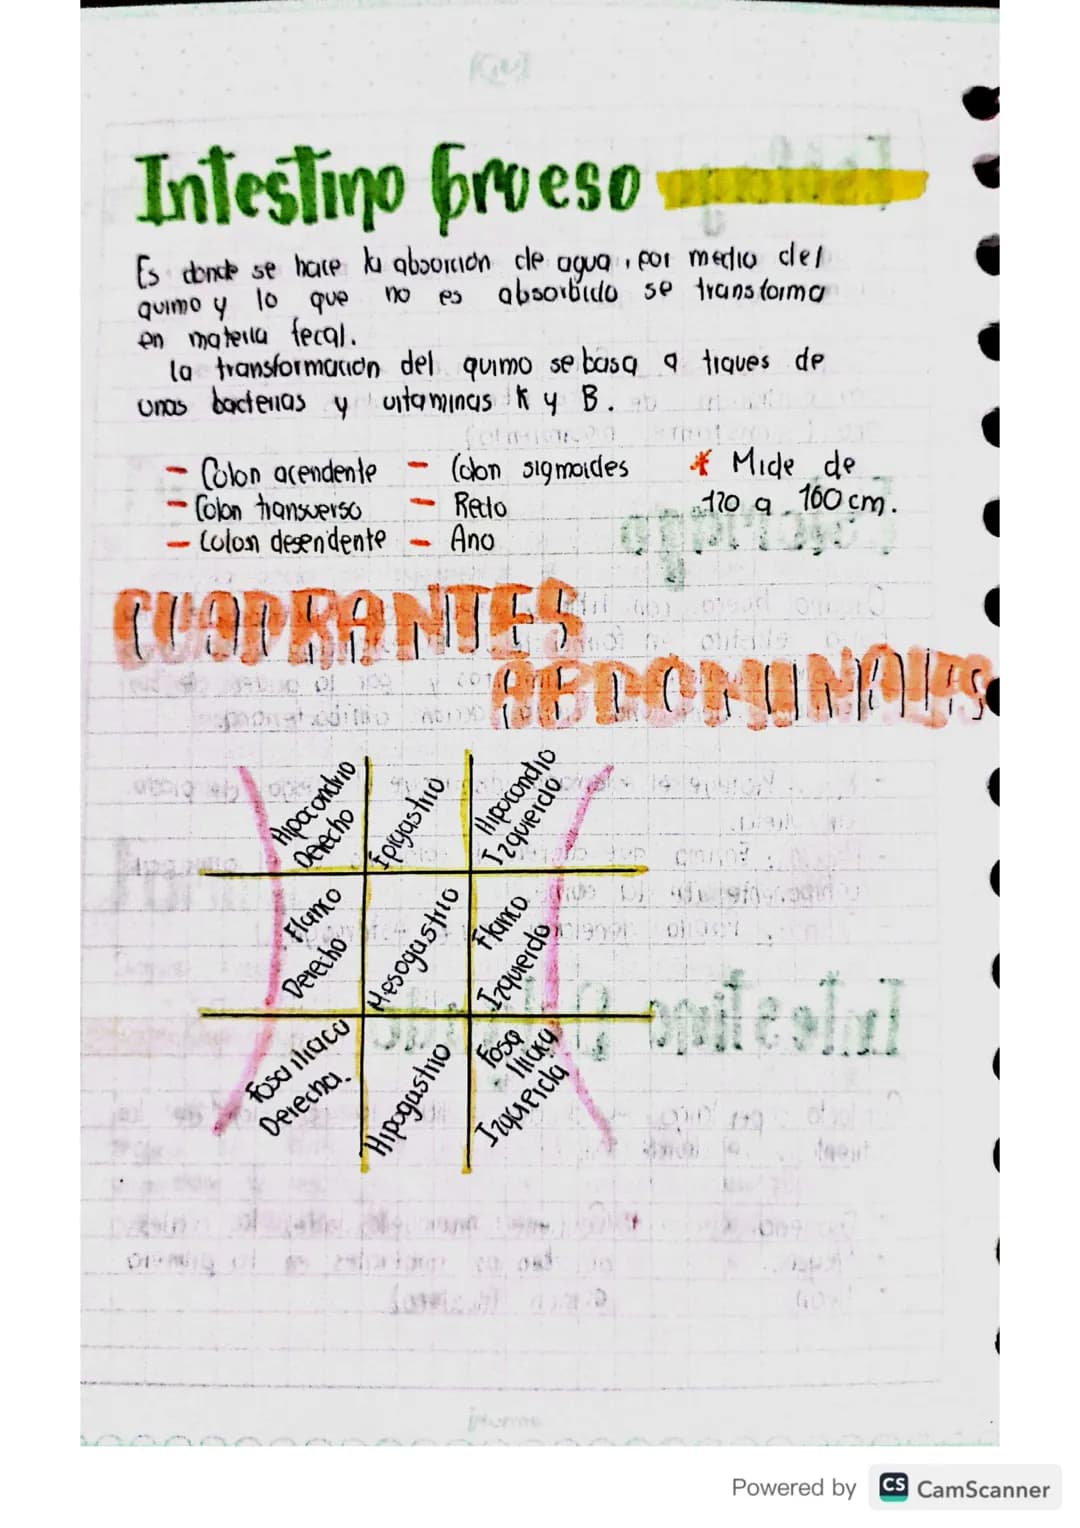 Intestino Grueso
Es donde se hace la absorción de agua, por medio del
quimo y lo que no es absorbido se transforma
en materia fecal.
la transformación del quimo se basa a traves de
unas bacterias y vitaminas K y B.
- Colon acendente - Colon sigmoides * Mide de
- Colon transverso - Recto 120 a 160 cm.
- Colon desendente - Ano
CUADRANTES
ABDOMINALES
Hipocondrio
Derecho
Epigastrio
Hipocondrio
Izquierdo
Flanco
Derecho
Mesogastrio
Flanco
Izquierdo
Fosa iliaca
Derecha.
Hipogastrio
Fosa
Iliaca
Izquierda
Powered by CS CamScanner